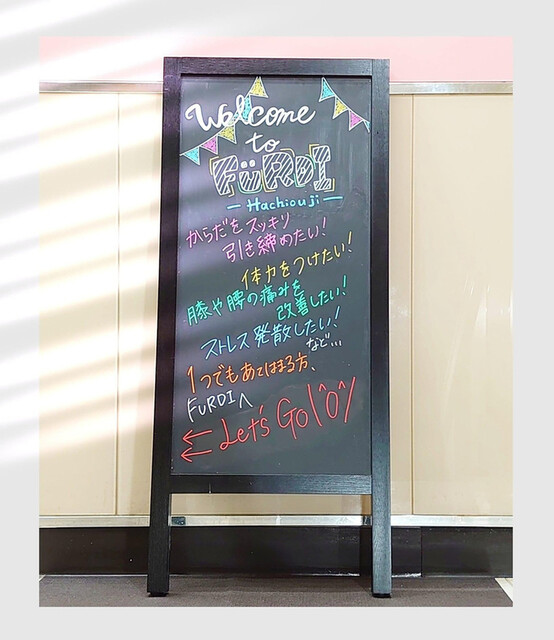 Welcome
to
FÜRDI
— Hachiouji —
からだをスッキリ
引き締めたい!
体力をつけたい!
膝や腰の痛みを
改善したい!
ストレス発散したい!
など...
1つでもあてはまる方、
FURDIへ
← Let's Go \^o^/
←